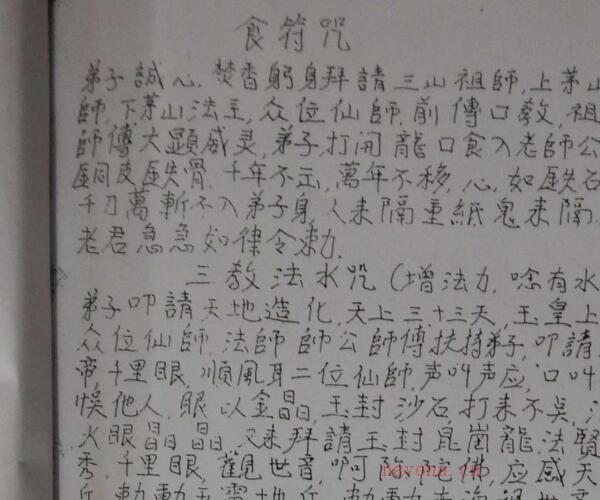 食符咒
弟子誠心.焚香躬身拜請三山祖師,上茅山
師,下茅山法主,众位仙師.前傳口教,祖
師傳大顯威灵,弟子,打開龍口食入老師公
皮 骨.千年不 ,萬年不移,心,如 石
千刀萬斬不入弟子身,人来隔重紙鬼来隔.
老君急急如律令勅.
三教法水咒(增法力.唸有水
弟子叩請天地造化,天上三十三天,玉皇上
众位仙師.法師師公師傅扶持弟子,叩請
帝,千里眼.順風耳二位仙師,声叫声应,口叫
他人.眼以金晶,玉封沙石打来不 ,
火眼晶晶.又来拜請玉封昆崗龍,法賢
秀,千里眼.觀世音,啊 佛,应感天
兵